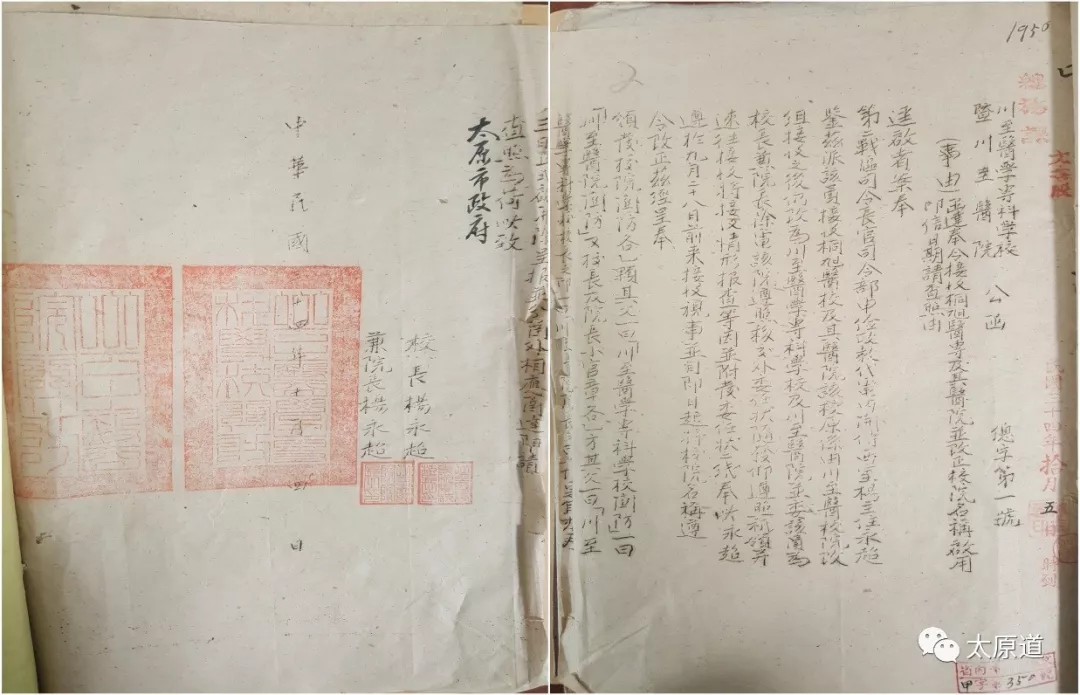 1950
川至醫學專科學校
暨川至醫院 公函 總字第一號
(事由)函達奉令接收桐旭醫專及其醫院並改正校院名稱啟用
印信日期請查照由
逕啟者案奉
第二戰區司令長官司令部申
代電內開
主任永超
鑒茲派該員接收桐旭醫校及其醫院該校原係由川至醫校院改
組接收之後仍改為川至醫學專科學校及川至醫院並委該員為
校長兼院長除電該院遵照
外委任狀隨發仰遵照
速往接收將接收情形報查等因並附發委任狀二紙奉此永超
遵於九月二十八日前來接收視事並自即日起將校院名稱遵
令改正茲經呈奉
頒發校院關防各一顆其文一曰「川至醫學專科學校關防」一曰
「川至醫院關防」又校長及院長小官章各一方其文一曰「川至
查照為荷此致
太原市政府
校長楊永超
兼院長楊永超
中華民國三十四年十月四日
總務課
民國三十四年拾月五日 時到
甲字 350
太原道